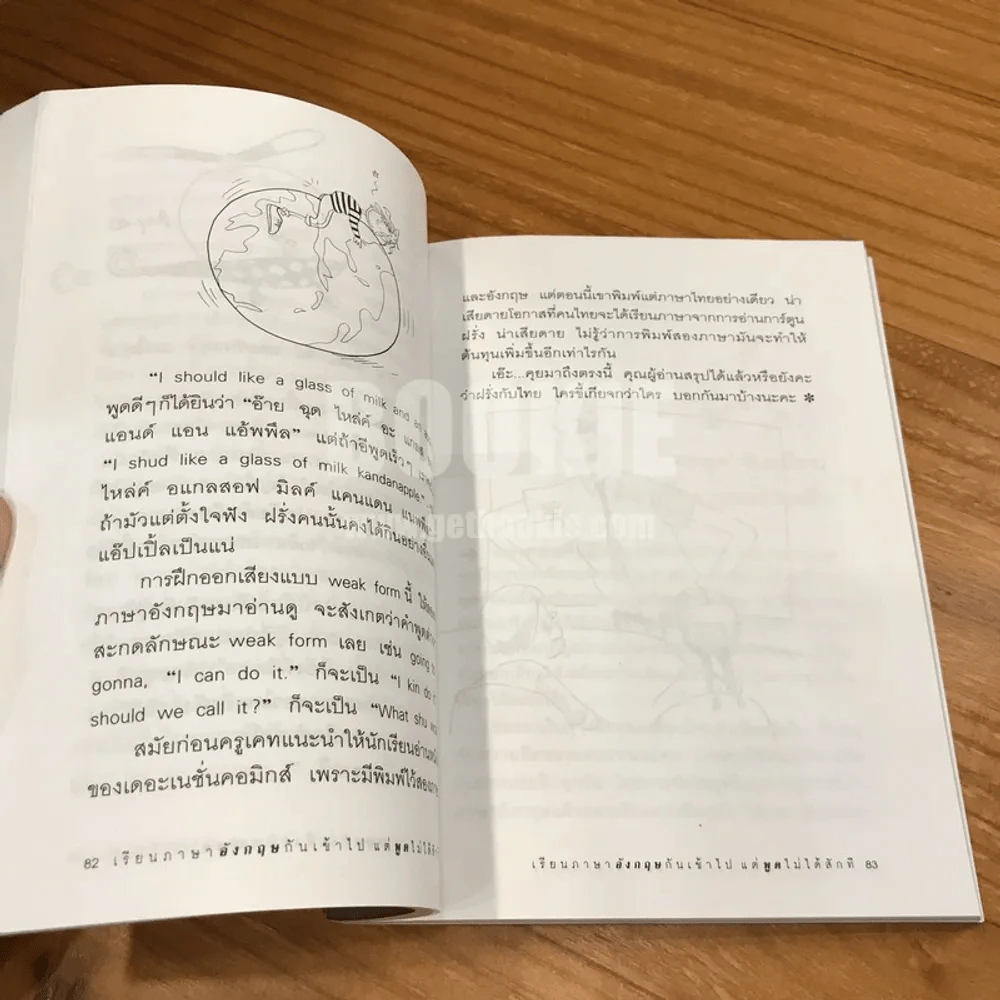 "I should like a glass of milk and an
พูดดีๆก็ได้ยินว่า "อ๊าย ฉุด ไหล่ค์ อะ แกลส
แอนด์ แอน แอ้พพึล" แต่ถ้าอีพูดเร็วๆ
"I shud like a glass of milk kandanapple."
ไหล่ค์ อแกลสอฟ มิลค์ แคนแดน
ถ้ามัวแต่ตั้งใจฟัง ฝรั่งคนนั้นคงได้กินอย่างอื่น
แอ๊ปเปิ้ลเป็นแน่
การฝึกออกเสียงแบบ weak form นี้
ภาษาอังกฤษมาอ่านดู จะสังเกตว่าคำพูด
สะกดลักษณะ weak form เลย เช่น going to
gonna, "I can do it." ก็จะเป็น "I kin do
should we call it?" ก็จะเป็น "What shu
สมัยก่อนครูเคทแนะนำให้นักเรียนอ่าน
ของเดอะเนชั่นคอมิกส์ เพราะมีพิมพ์ไว้สอง
82 เรียนภาษาอังกฤษกันเข้าไป แต่พูดไม่ได้
และอังกฤษ แต่ตอนนี้เขาพิมพ์แต่ภาษาไทยอย่างเดียว น่า
เสียดายโอกาสที่คนไทยจะได้เรียนภาษาจากการอ่านการ์ตูน
ฝรั่ง น่าเสียดาย ไม่รู้ว่าการพิมพ์สองภาษามันจะทำให้
ต้นทุนเพิ่มขึ้นอีกเท่าไรกัน
เอ๊ะ...คุยมาถึงตรงนี้ คุณผู้อ่านสรุปได้แล้วหรือยังคะ
ว่าฝรั่งกับไทย ใครขี้เกียจกว่าใคร บอกกันมาบ้างนะคะ *
เรียนภาษาอังกฤษกันเข้าไป แต่พูดไม่ได้สักที 83